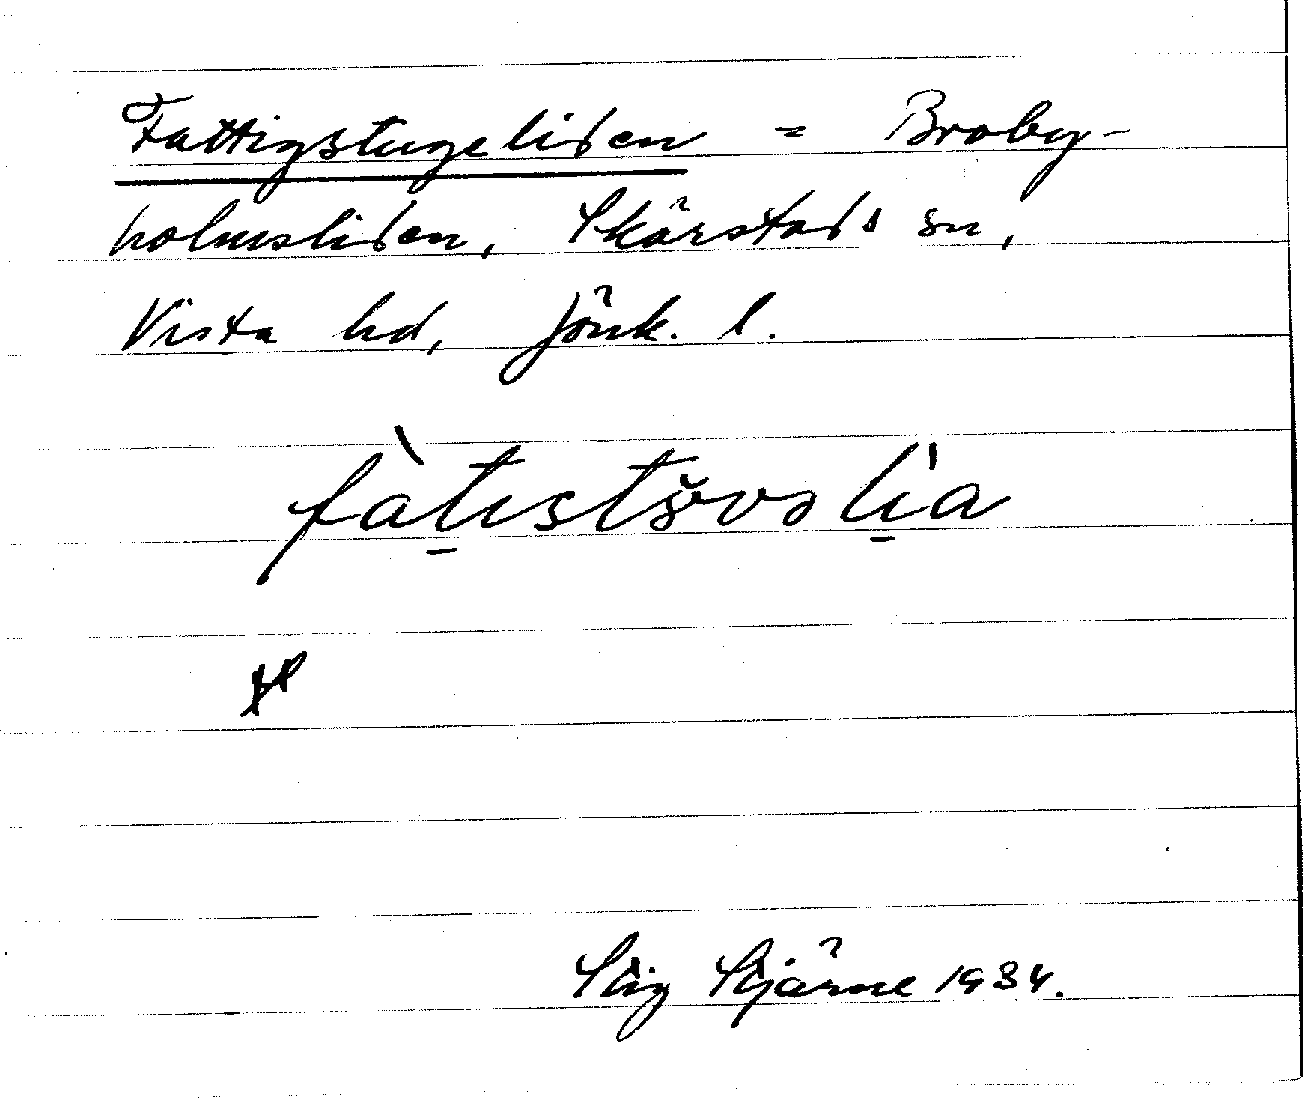 Fattigstugeliden = Broby-
holmsliden, Skärstads sn,
Vista hd, Jönk. l.
Stig Stjärne 1934.